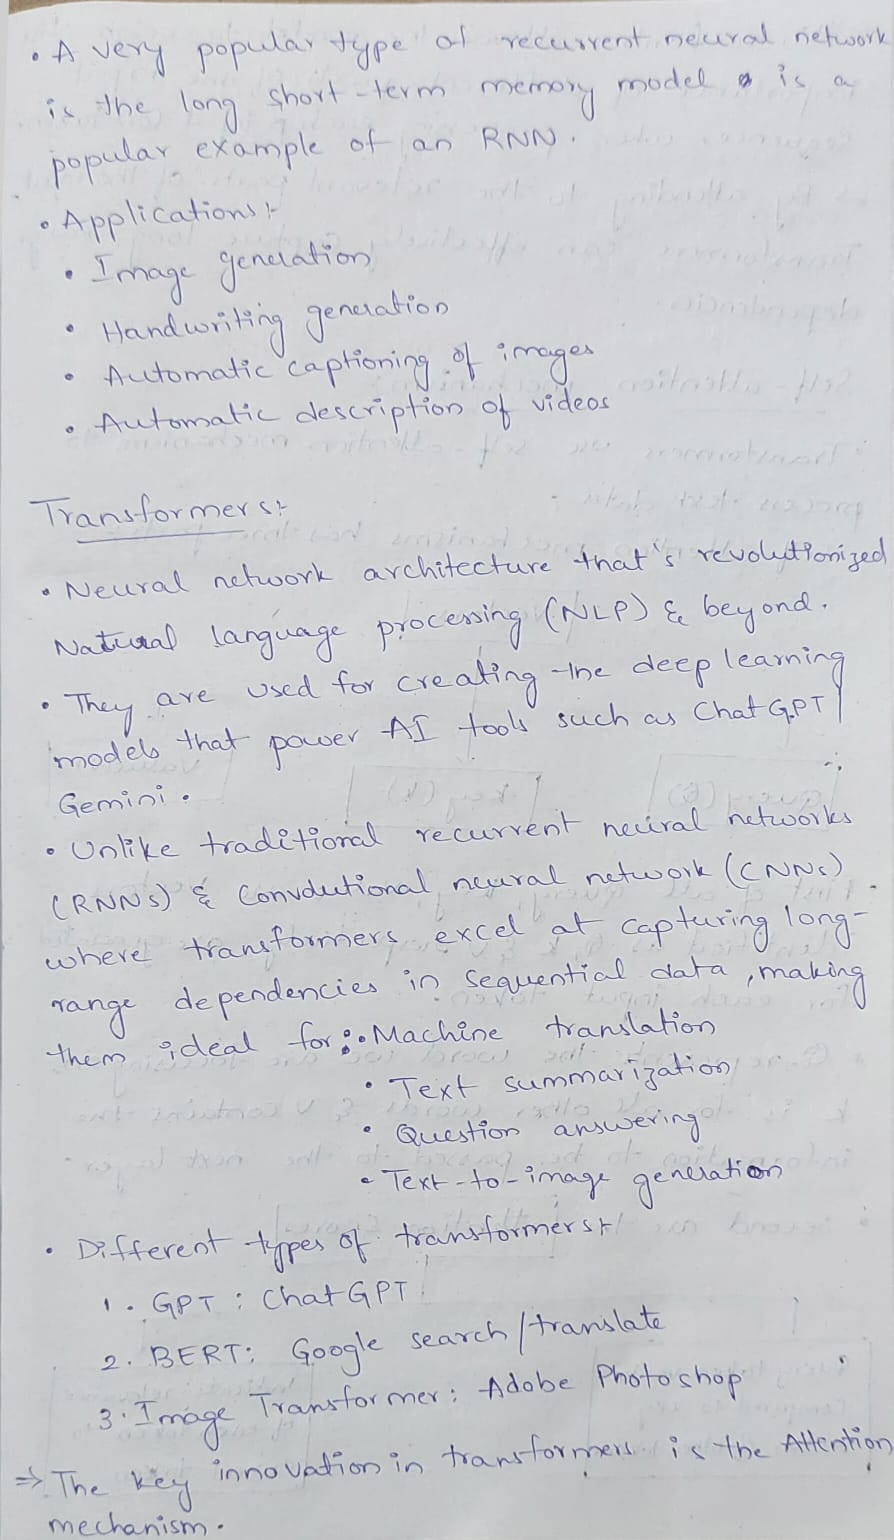 • A very popular type of recurrent neural network
is the long short-term memory model is a
popular example of an RNN.
• Applications:-
• Image generation
• Handwriting generation
• Automatic captioning of images
• Automatic description of videos
Transformers:-
• Neural network architecture that's revolutionized
Natural language processing (NLP) & beyond.
• They are used for creating the deep learning
models that power AI tools such as ChatGPT/
Gemini.
• Unlike traditional recurrent neural networks
(RNNs) & Convolutional neural network (CNNs).
where transformers excel at capturing long-
range dependencies in sequential data, making
them ideal for: • Machine translation
• Text summarization
• Question answering
• Text-to-image generation
• Different types of transformers:-
1. GPT : ChatGPT
2. BERT: Google search/translate
3. Image Transformer: Adobe Photoshop
⇒ The key innovation in transformers is the Attention
mechanism.